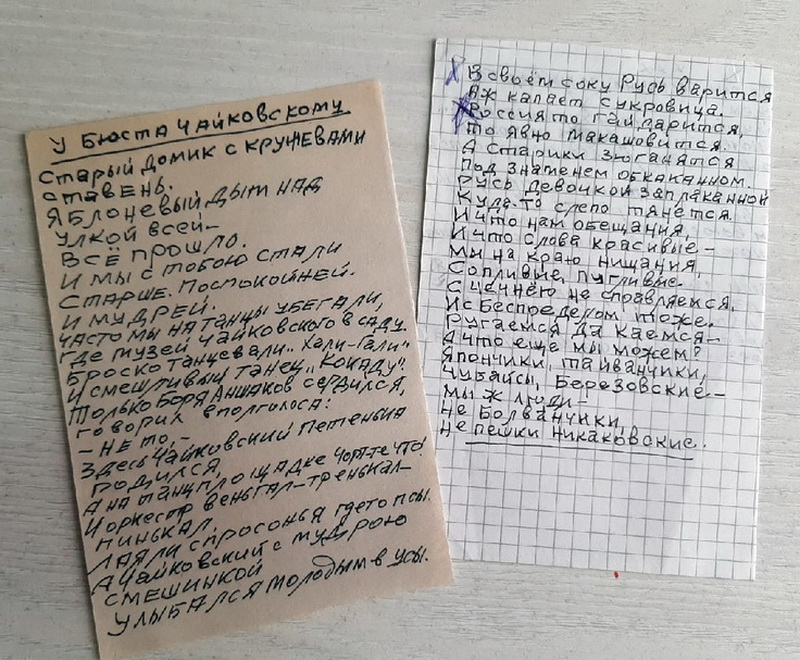 У БЮСТА ЧАЙКОВСКОМУ
Старый домик с кружевами
ставень.
Яблоневый дым над
улкой всей—
Всё прошло.
И мы с тобою стали
Старше. Поспокойней.
И мудрей.
Часто мы на танцы убегали,
Где музей Чайковского в саду.
Броско танцевали „Хали-Гали"
И смешливый танец „Кокаду".
Только Боря Аншаков сердился,
Говорил вполголоса:
– Не то,–
Здесь Чайковский Петенька
родился,
А на танцплощадке чорте что!
И оркестр веньгал-тренькал–
пинькал.
Лаяли спросонья где то псы.
А Чайковский с мудрою
смешинкой
Улыбался молодым в усы.
В своём соку Русь варится
Аж капает сукровица.
Россия то гайдарится,
То явно макашовится.
А старики зюганятся
Под знаменем обкаканном.
Русь девочкой заплаканной
Куда-то слепо тянется.
И что нам обещания,
И что слова красивые–
Мы на краю нищания,
Сопливые, пугливые.
С Чечнёю не справляемся,
И с беспределом тоже.
Ругаемся да каемся–
А что ещё мы можем?
Япончики, тайванчики,
Чубайсы, Березовские–
Мы ж люди–
Не болванчики,
Не пешки никаковские.